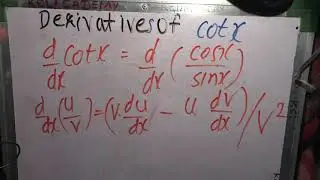 Derivatives of cotx
d/dx cotx = d/dx (cosx/sinx)
d/dx (u/v) = (v. du/dx - u dv/dx)/v²